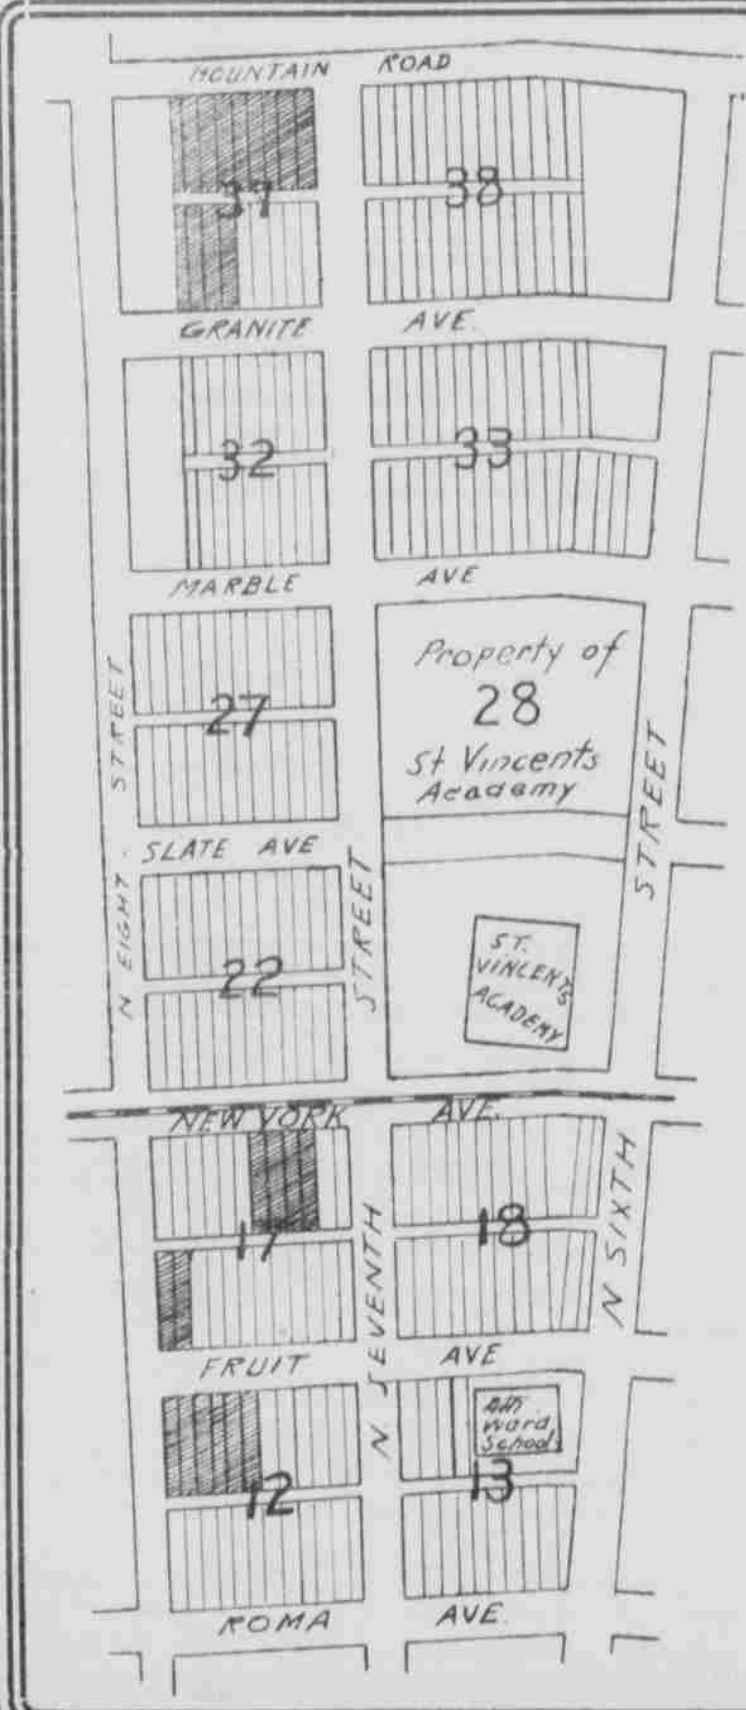 MOUNTAIN ROAD
37 38
GRANITE AVE.
32 33
MARBLE AVE
Property of
28
St Vincents
Academy
27
N EIGHT. STREET
SLATE AVE
STREET
STREET
22
ST.
VINCENTS
ACADEMY
NEW YORK AVE.
17 18
N. SEVENTH
N SIXTH
FRUIT AVE
Ward
School
12 13
ROMA AVE.